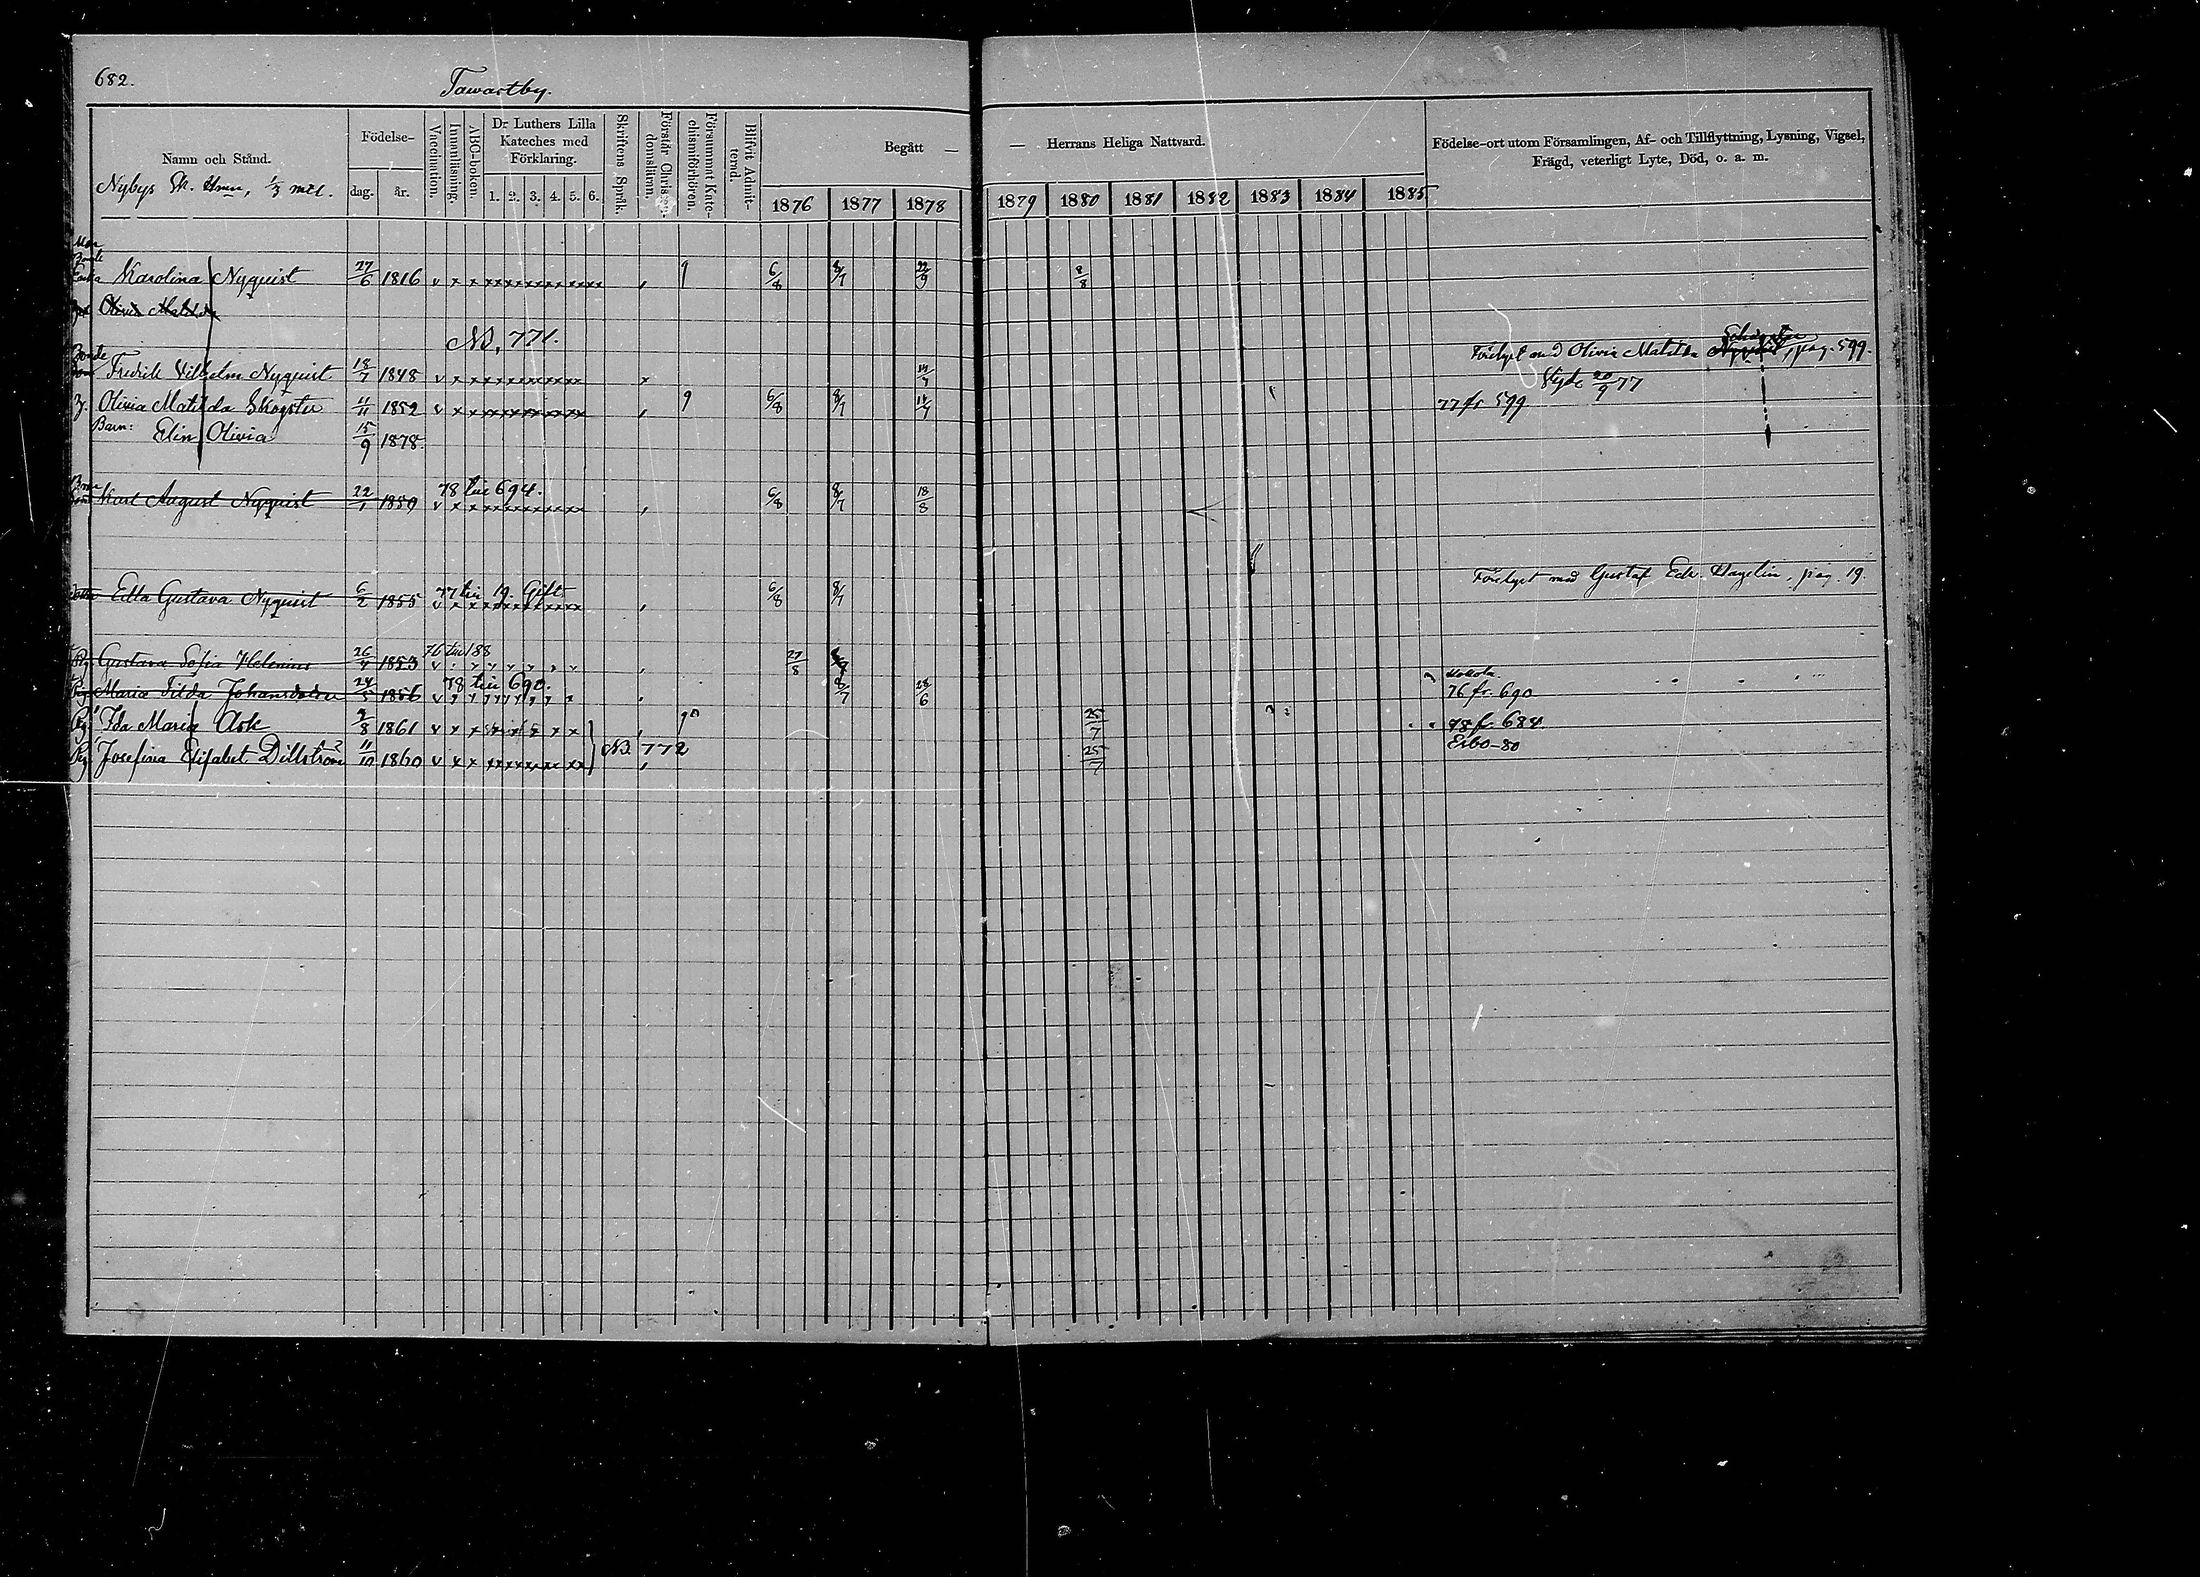 682.
Tawastby.
Namn och Stånd.
Nybys Sk. Hmn, 1/3 mtl.
Födelse-
dag.
år.
Vaccination.
Innanläsning.
ABC-boken.
Dr Luthers Lilla Kateches med Förklaring.
1. 2. 3. 4. 5. 6.
Skriftens Språk.
Förstår Christendomsläran.
Försummat Katechismiförhören.
Blifvit Admitterad.
Begått —
— Herrans Heliga Nattvard.
1876 1877 1878 1879 1880 1881 1882 1883 1884 1885
Födelse-ort utom Församlingen, Af- och Tillflyttning, Lysning, Vigsel,
Frägd, veterligt Lyte, Död, o. a. m.
Karolina Nyquist 27/6 1816 v x x x x x x x x x 9 6/8 8/7 22/9 8/8
Olivia Matilda
NB. 771.
Bonde
Fredrik Vilhelm Nyquist 18/7 1848 v x x x x x x x x Förelyst med Olivia Matilda Nyquist, pag. 599.
Vigde 20/9 77
Olivia Matilda Skogster 11/11 1852 v x x x x x x x x 9 6/8 8/7 14/7 77 fr 599
Barn: Elin Olivia 15/9 1878.
78 till 694.
Karl August Nyquist 22/1 1850 v x x x x x x x x 6/8 8/7 18/8
Förelyst med Gustaf Edv. Hagelin, pag. 19.
77 till 19. Gift
Edla Gustava Nyquist 6/2 1855 v x x x x x x x x 6/8 8/7
76 till 188
Pig. Gustava Sofia Helenius 26/4 1853 27/8
78 till 690.
Pig. Maria Tilda Johansdotter 24/5 1856 8/7 24/6 76 fr. 690
Pig. Ida Maria Ask 2/8 1861 v x x x x x x x x 25/7 78 fr. 684
NB. 772
Pig. Josefina Elisabet Dillström 11/10 1860 v x x x x x x x x 25/7 Esbo-80